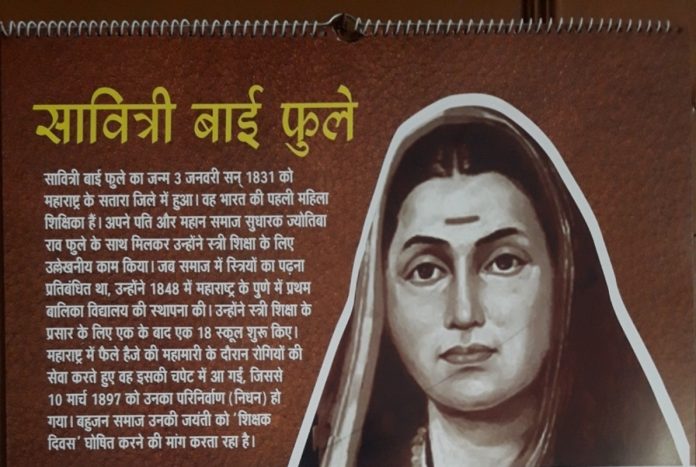 सावित्री बाई फुले
सावित्री बाई फुले का जन्म 3 जनवरी सन् 1831 को
महाराष्ट्र के सतारा जिले में हुआ। वह भारत की पहली महिला
शिक्षिका हैं। अपने पति और महान समाज सुधारक ज्योतिबा
राव फुले के साथ मिलकर उन्होंने स्त्री शिक्षा के लिए
उल्लेखनीय काम किया। जब समाज में स्त्रियों का पढ़ना
प्रतिबंधित था, उन्होंने 1848 में महाराष्ट्र के पुणे में प्रथम
बालिका विद्यालय की स्थापना की। उन्होंने स्त्री शिक्षा के
प्रसार के लिए एक के बाद एक 18 स्कूल शुरू किए।
महाराष्ट्र में फैले हैजे की महामारी के दौरान रोगियों की
सेवा करते हुए वह इसकी चपेट में आ गईं, जिससे
10 मार्च 1897 को उनका परिनिर्वाण (निधन) हो
गया। बहुजन समाज उनकी जयंती को ‘शिक्षक
दिवस’ घोषित करने की मांग करता रहा है।